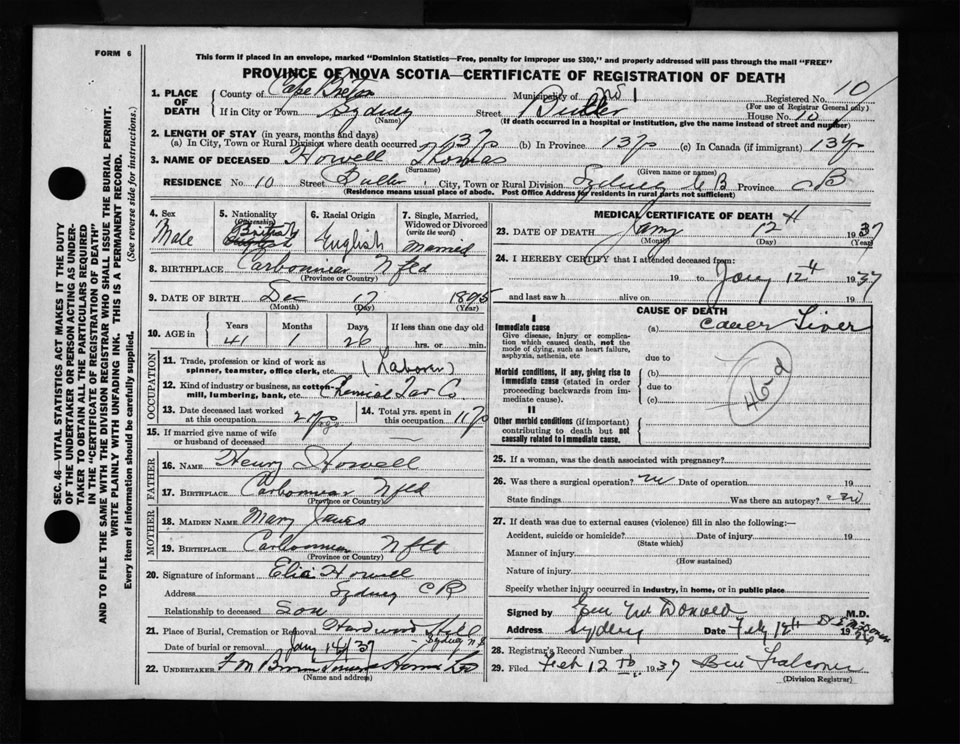 FORM 6
This form if placed in an envelope, marked "Dominion Statistics—Free, penalty for improper use $300," and properly addressed will pass through the mail "FREE"
PROVINCE OF NOVA SCOTIA—CERTIFICATE OF REGISTRATION OF DEATH
1. PLACE OF DEATH County of Cape Breton Municipality of No 1 Registered No. 10
(For use of Registrar General only)
If in City or Town Sydney Street Butler House No. 10
(Name) (If death occurred in a hospital or institution, give the name instead of street and number)
2. LENGTH OF STAY (in years, months and days)
(a) In City, Town or Rural Division where death occurred 13 (b) In Province 13 (c) In Canada (if immigrant) 13
3. NAME OF DECEASED Howell Thomas
(Surname) (Given name or names)
RESIDENCE No. 10 Street Butler City, Town or Rural Division Sydney C B Province C B
(Residence means usual place of abode. Post Office Address for residents in rural parts not sufficient)
4. Sex Male
5. Nationality (Citizenship) British
6. Racial Origin English
7. Single, Married, Widowed or Divorced (write the word) Married
8. BIRTHPLACE Carbonear Nfld
(Province or Country)
9. DATE OF BIRTH Dec 17 1895
(Month) (Day) (Year)
10. AGE in Years 41 Months 1 Days 26 If less than one day old hrs. or min.
OCCUPATION
11. Trade, profession or kind of work as spinner, teamster, office clerk, etc. (Laborer)
12. Kind of industry or business, as cotton-mill, lumbering, bank, etc. Chemical Tar Co.
13. Date deceased last worked at this occupation 2 ago
14. Total yrs. spent in this occupation 11
15. If married give name of wife or husband of deceased
FATHER
16. NAME Henry Howell
17. BIRTHPLACE Carbonear Nfld
(Province or Country)
MOTHER
18. MAIDEN NAME Mary
19. BIRTHPLACE Carbonear Nfld
(Province or Country)
20. Signature of informant Howell
Address Sydney C B
Relationship to deceased Son
21. Place of Burial, Cremation or Removal Hardwood Hill Sydney N.S.
Date of burial or removal 14/37
22. UNDERTAKER F M
(Name and address)
MEDICAL CERTIFICATE OF DEATH
23. DATE OF DEATH 12 1937
(Month) (Day) (Year)
24. I HEREBY CERTIFY that I attended deceased from:
19 to 12 1937
and last saw h alive on 19
CAUSE OF DEATH
I
Immediate cause
Give disease, injury or complication which caused death, not the mode of dying, such as heart failure, asphyxia, asthenia, etc
(a) Cancer Liver
due to
Morbid conditions, if any, giving rise to immediate cause (stated in order proceeding backwards from immediate cause).
(b)
due to
(c)
46 a d
II
Other morbid conditions (if important) contributing to death but not causally related to immediate cause.
25. If a woman, was the death associated with pregnancy?
26. Was there a surgical operation? no Date of operation 19
State findings Was there an autopsy? no
27. If death was due to external causes (violence) fill in also the following:—
Accident, suicide or homicide? Date of injury 19
(State which)
Manner of injury
(How sustained)
Nature of injury
Specify whether injury occurred in industry, in home, or in public place
Signed by McDonald M.D.
Address Sydney Date Feb 12 19
28. Registrar's Record Number
29. Filed Feb 12th 1937 Falconer
(Division Registrar)
SEC. 46—VITAL STATISTICS ACT MAKES IT THE DUTY
OF THE UNDERTAKER OR PERSON ACTING AS UNDER-
TAKER TO OBTAIN ALL THE PARTICULARS REQUIRED
IN THE "CERTIFICATE OF REGISTRATION OF DEATH"
AND TO FILE THE SAME WITH THE DIVISION REGISTRAR WHO SHALL ISSUE THE BURIAL PERMIT.
WRITE PLAINLY WITH UNFADING INK. THIS IS A PERMANENT RECORD.
Every item of information should be carefully supplied. (See reverse side for instructions.)